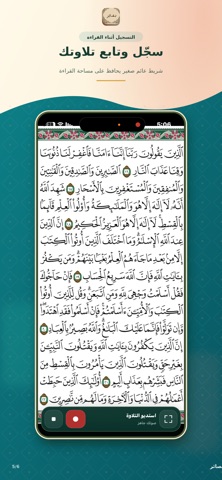 التسجيل أثناء القراءة
سجّل وتابع تلاوتك
شريط عائم صغير يحافظ على مساحة القراءة
5:06
ٱلَّذِينَ يَقُولُونَ رَبَّنَآ إِنَّنَآ ءَامَنَّا فَٱغْفِرْ لَنَا ذُنُوبَنَا
وَقِنَا عَذَابَ ٱلنَّارِ ١٦ ٱلصَّٰبِرِينَ وَٱلصَّٰدِقِينَ وَٱلْقَٰنِتِينَ
وَٱلْمُنفِقِينَ وَٱلْمُسْتَغْفِرِينَ بِٱلْأَسْحَارِ ١٧ شَهِدَ ٱللَّهُ
أَنَّهُۥ لَآ إِلَٰهَ إِلَّا هُوَ وَٱلْمَلَٰٓئِكَةُ وَأُو۟لُوا۟ ٱلْعِلْمِ قَآئِمًۢا
بِٱلْقِسْطِ لَآ إِلَٰهَ إِلَّا هُوَ ٱلْعَزِيزُ ٱلْحَكِيمُ ١٨ إِنَّ ٱلدِّينَ
عِندَ ٱللَّهِ ٱلْإِسْلَٰمُ وَمَا ٱخْتَلَفَ ٱلَّذِينَ أُوتُوا۟ ٱلْكِتَٰبَ
إِلَّا مِنۢ بَعْدِ مَا جَآءَهُمُ ٱلْعِلْمُ بَغْيًۢا بَيْنَهُمْ وَمَن يَكْفُرْ
بِـَٔايَٰتِ ٱللَّهِ فَإِنَّ ٱللَّهَ سَرِيعُ ٱلْحِسَابِ ١٩ فَإِنْ حَآجُّوكَ
فَقُلْ أَسْلَمْتُ وَجْهِىَ لِلَّهِ وَمَنِ ٱتَّبَعَنِ وَقُل لِّلَّذِينَ أُوتُوا۟
ٱلْكِتَٰبَ وَٱلْأُمِّيِّـۧنَ ءَأَسْلَمْتُمْ فَإِنْ أَسْلَمُوا۟ فَقَدِ ٱهْتَدَوا۟
وَّإِن تَوَلَّوْا۟ فَإِنَّمَا عَلَيْكَ ٱلْبَلَٰغُ وَٱللَّهُ بَصِيرٌۢ بِٱلْعِبَادِ ٢٠
إِنَّ ٱلَّذِينَ يَكْفُرُونَ بِـَٔايَٰتِ ٱللَّهِ وَيَقْتُلُونَ ٱلنَّبِيِّـۧنَ
بِغَيْرِ حَقٍّ وَيَقْتُلُونَ ٱلَّذِينَ يَأْمُرُونَ بِٱلْقِسْطِ مِنَ
ٱلنَّاسِ فَبَشِّرْهُم بِعَذَابٍ أَلِيمٍ ٢١ أُو۟لَٰٓئِكَ ٱلَّذِينَ حَبِطَتْ
أَعْمَٰلُهُمْ فِى ٱلدُّنْيَا وَٱلْءَاخِرَةِ وَمَا لَهُم مِّن نَّٰصِرِينَ ٢٢
استديو التلاوة
5/6